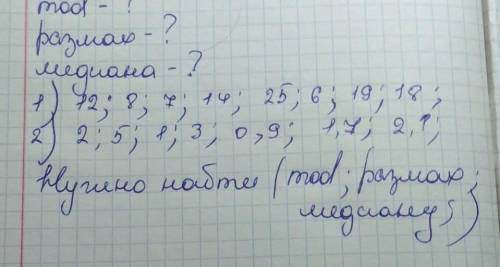 mod - ?
размах - ?
медиана - ?
1) 12; 8; 7; 14; 25; 6; 19; 18;
2) 2; 5; 1; 3; 0,9; 1,7; 2,1;
Нужно найти (mod; размах;
медиану;)